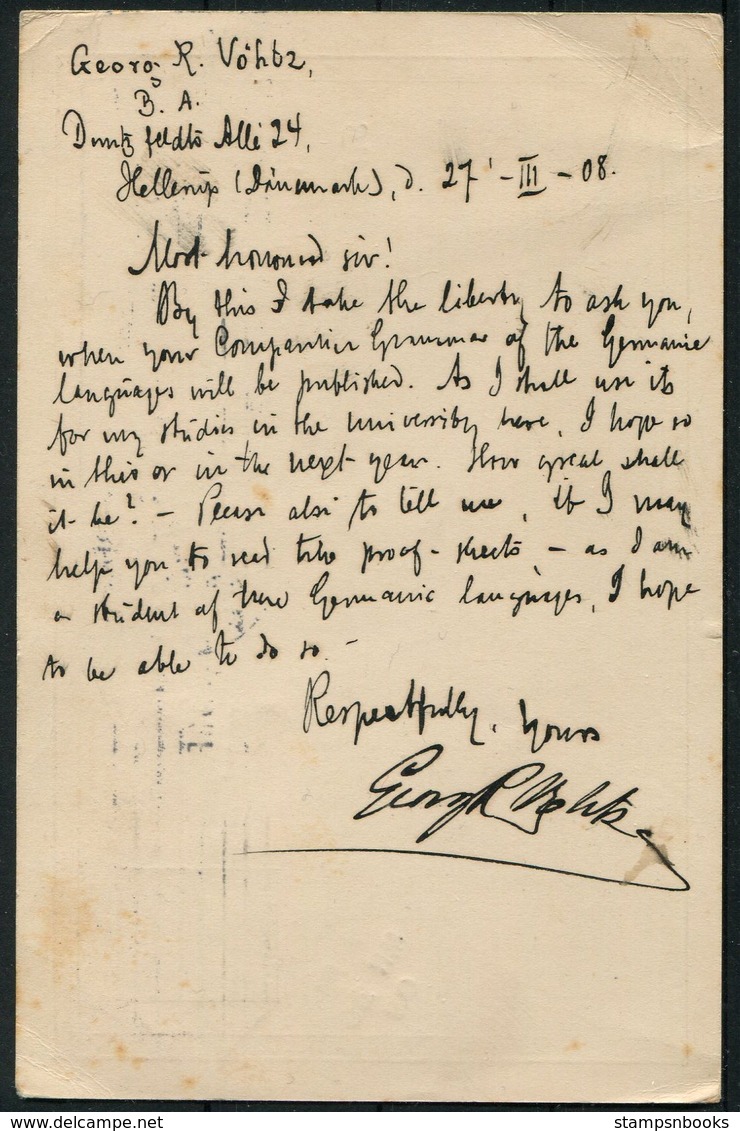 Georg R. Vöhtz,
B. A.
Duntzfeldts Allé 24,
Hellerup (Dänemark), d. 27 - III - 08.
Most honoured sir!
By this I take the liberty to ask you,
when your Comparativ Grammar of the Germanic
languages will be published. As I shall use it
for my studies in the university here, I hope so
in this or in the next year. How great shall
it be? — Please also to tell me, if I may
help you to read the proof-sheets, — as I am
a student of the Germanic languages, I hope
to be able to do so. —
Respectfully, Yours
Georg R Vöhtz
stampsnbooks.net
stampsnbooks